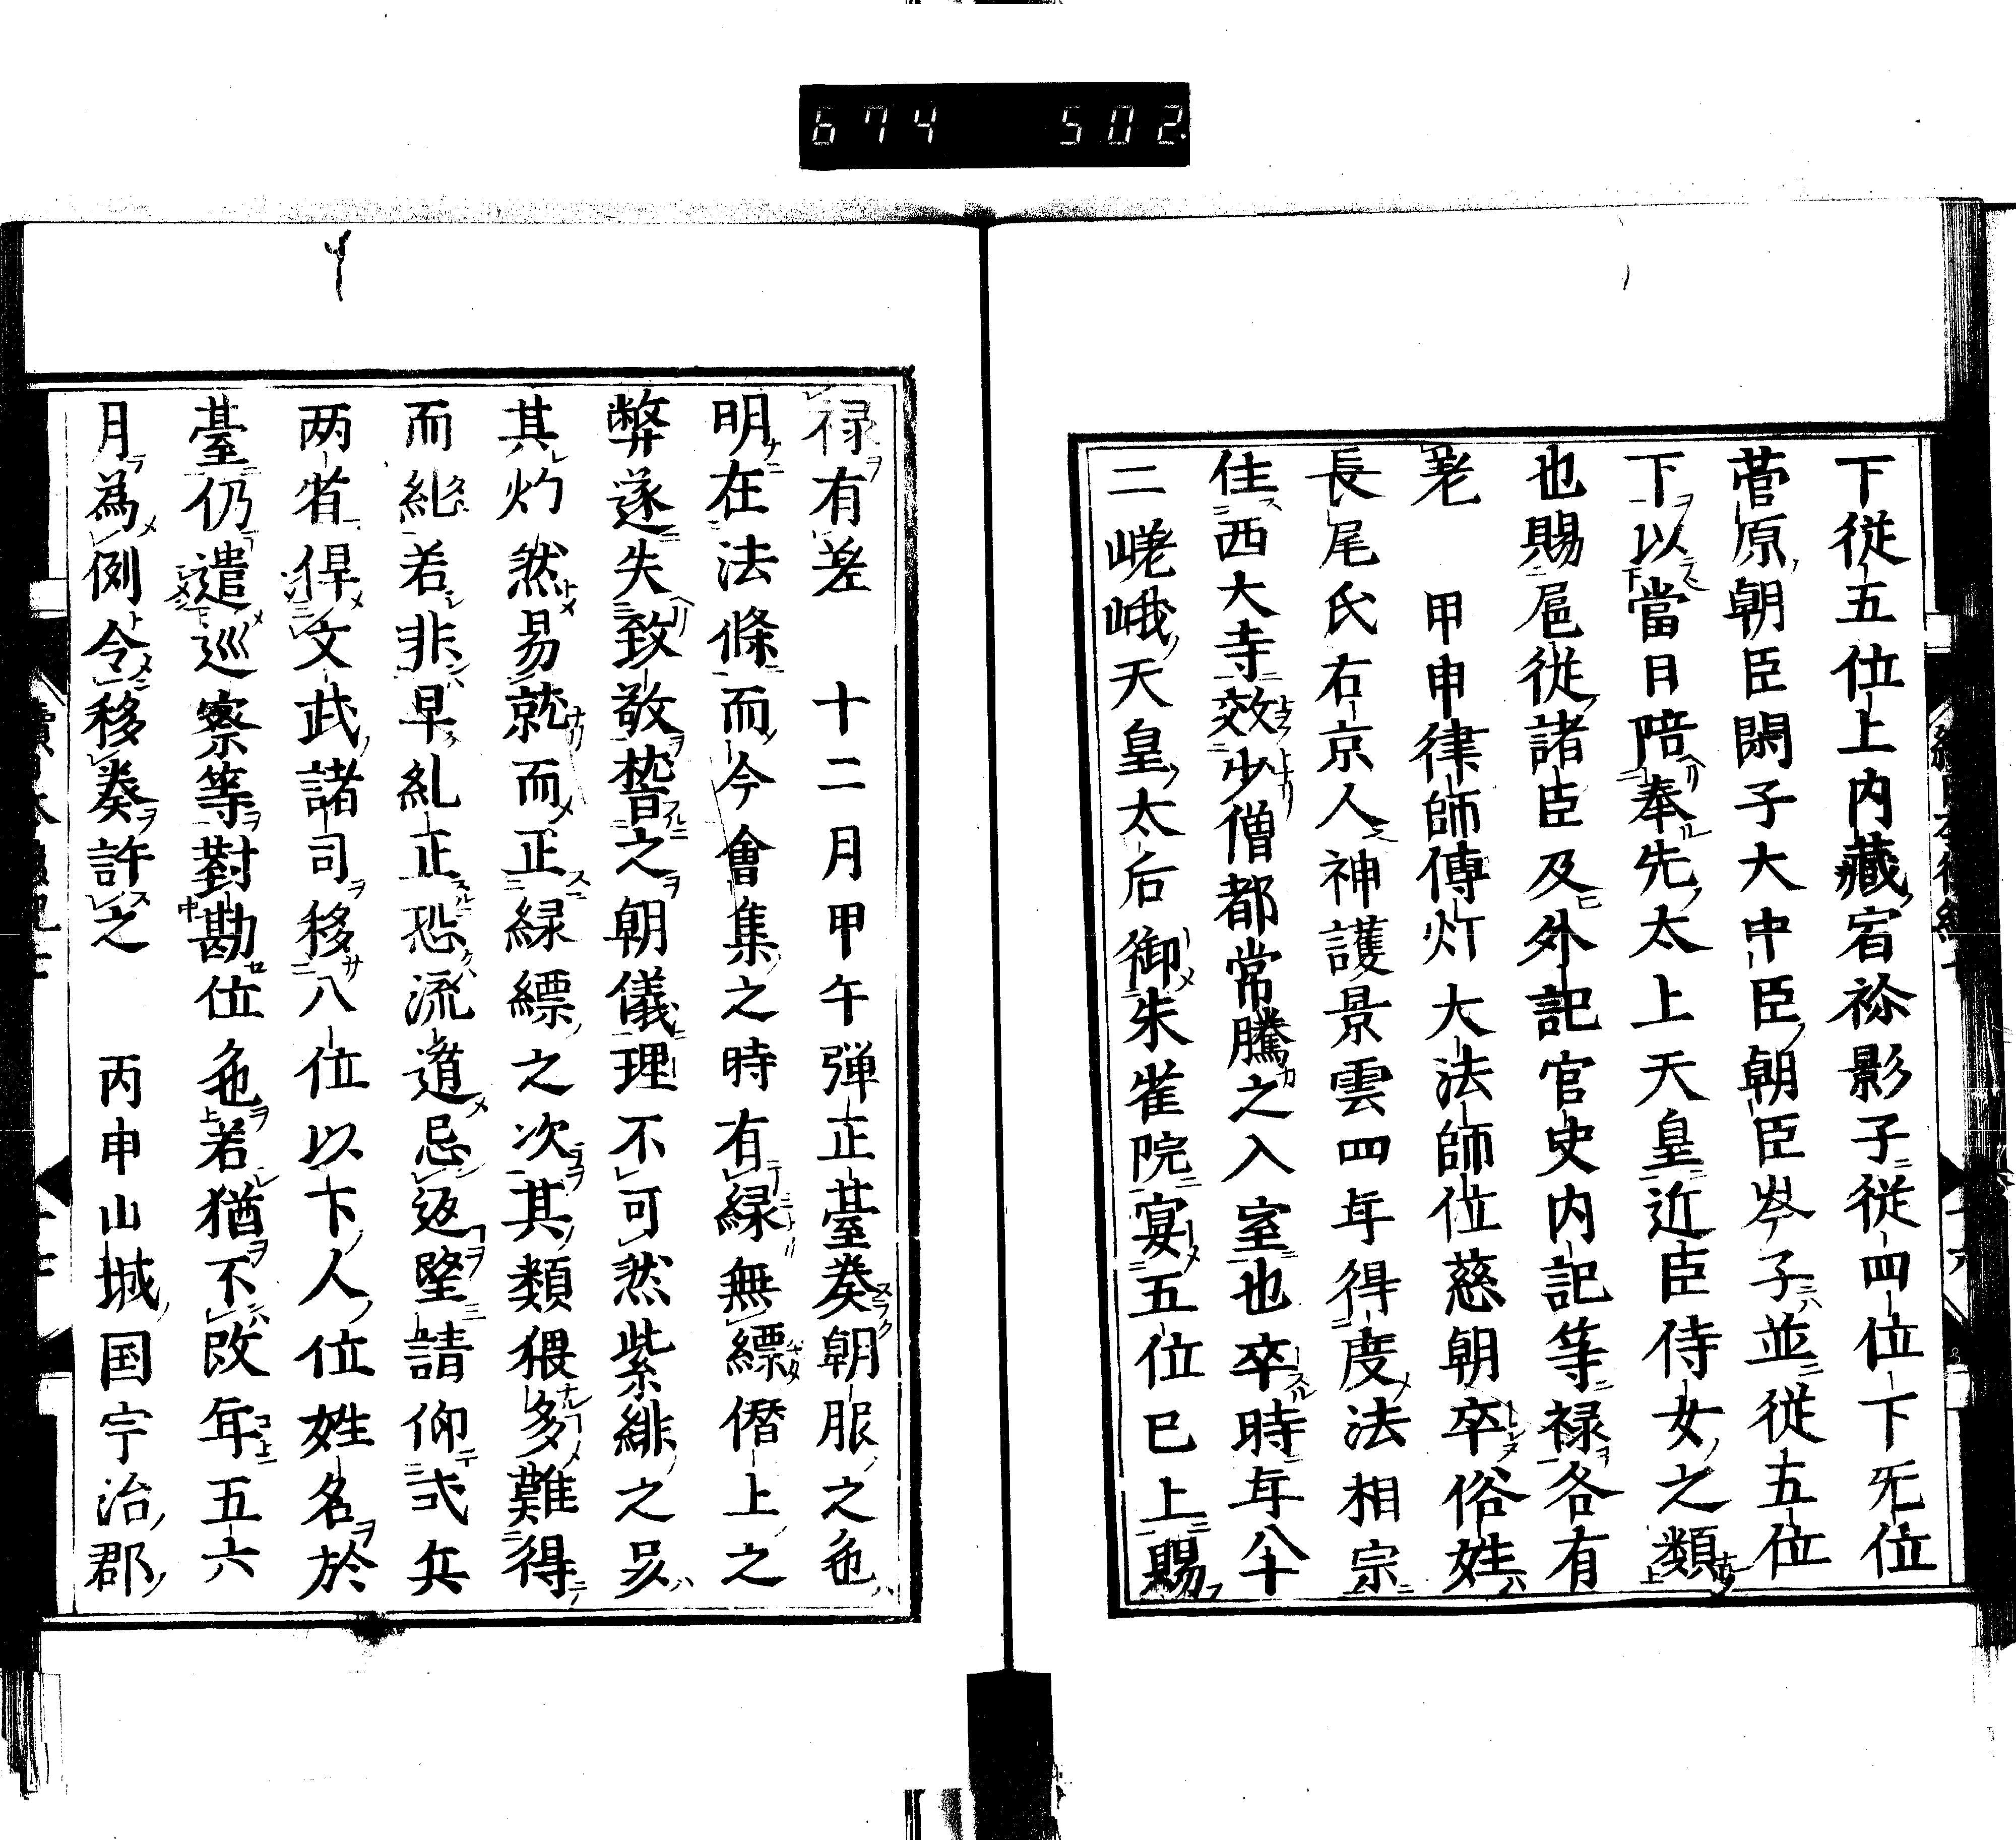 674 502
下従五位上内藏宿祢影子従四位下旡位
菅原朝臣閑子大中臣朝臣岑子並従五位
下以當日陪奉先太上天皇近臣侍女之類
也賜扈従諸臣及外記官史内記等禄各有
差 甲申律師傳灯大法師位慈朝卒俗姓
長尾氏右京人神護景雲四年得度法相宗
住西大寺效少僧都常騰之入室也卒時年八十
二嵯峨天皇太后御朱雀院宴五位已上賜
禄有差 十二月甲午弾正臺奏朝服之色
明在法條而今會集之時有緑無縹僭上之
弊遂失致敬嵆之朝儀理不可然紫緋之艮
其灼然易就而正緑縹之次其類猥多難得
而糺若非早糺正恐流遁忘返望請仰弐兵
两省俾文武諸司移八位以下人位姓名於
臺仍遣巡察等對勘位色若猶不改年五六
月為例令移奏許之 丙申山城国宇治郡